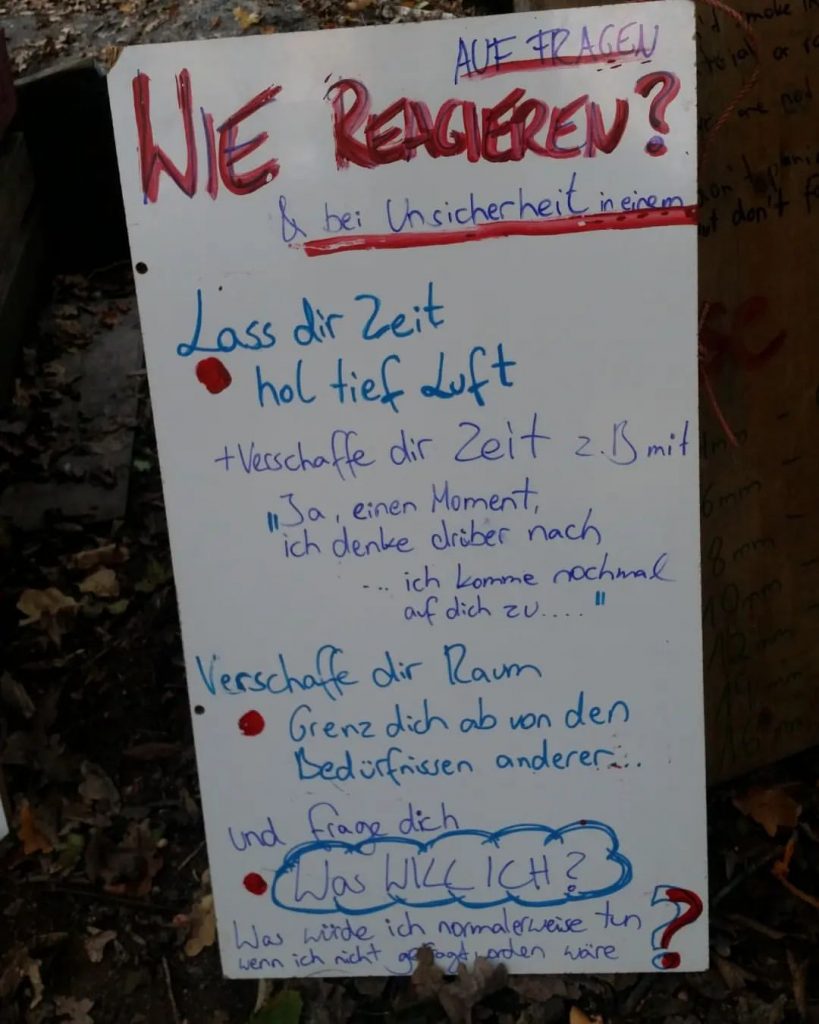 AUF FRAGEN
WIE REAGIEREN?
& bei Unsicherheit in einem
Lass dir Zeit
hol tief Luft
+Verschaffe dir Zeit z.B mit
"Ja, einen Moment,
ich denke drüber nach
... ich komme nochmal
auf dich zu....."
Verschaffe dir Raum
Grenz dich ab von den
Bedürfnissen anderer...
und frage dich
Was WILL ICH?
Was würde ich normalerweise tun
wenn ich nicht gefragt worden wäre
?
smoke
or
are not
don't
don't
6mm
8mm
10mm
12mm